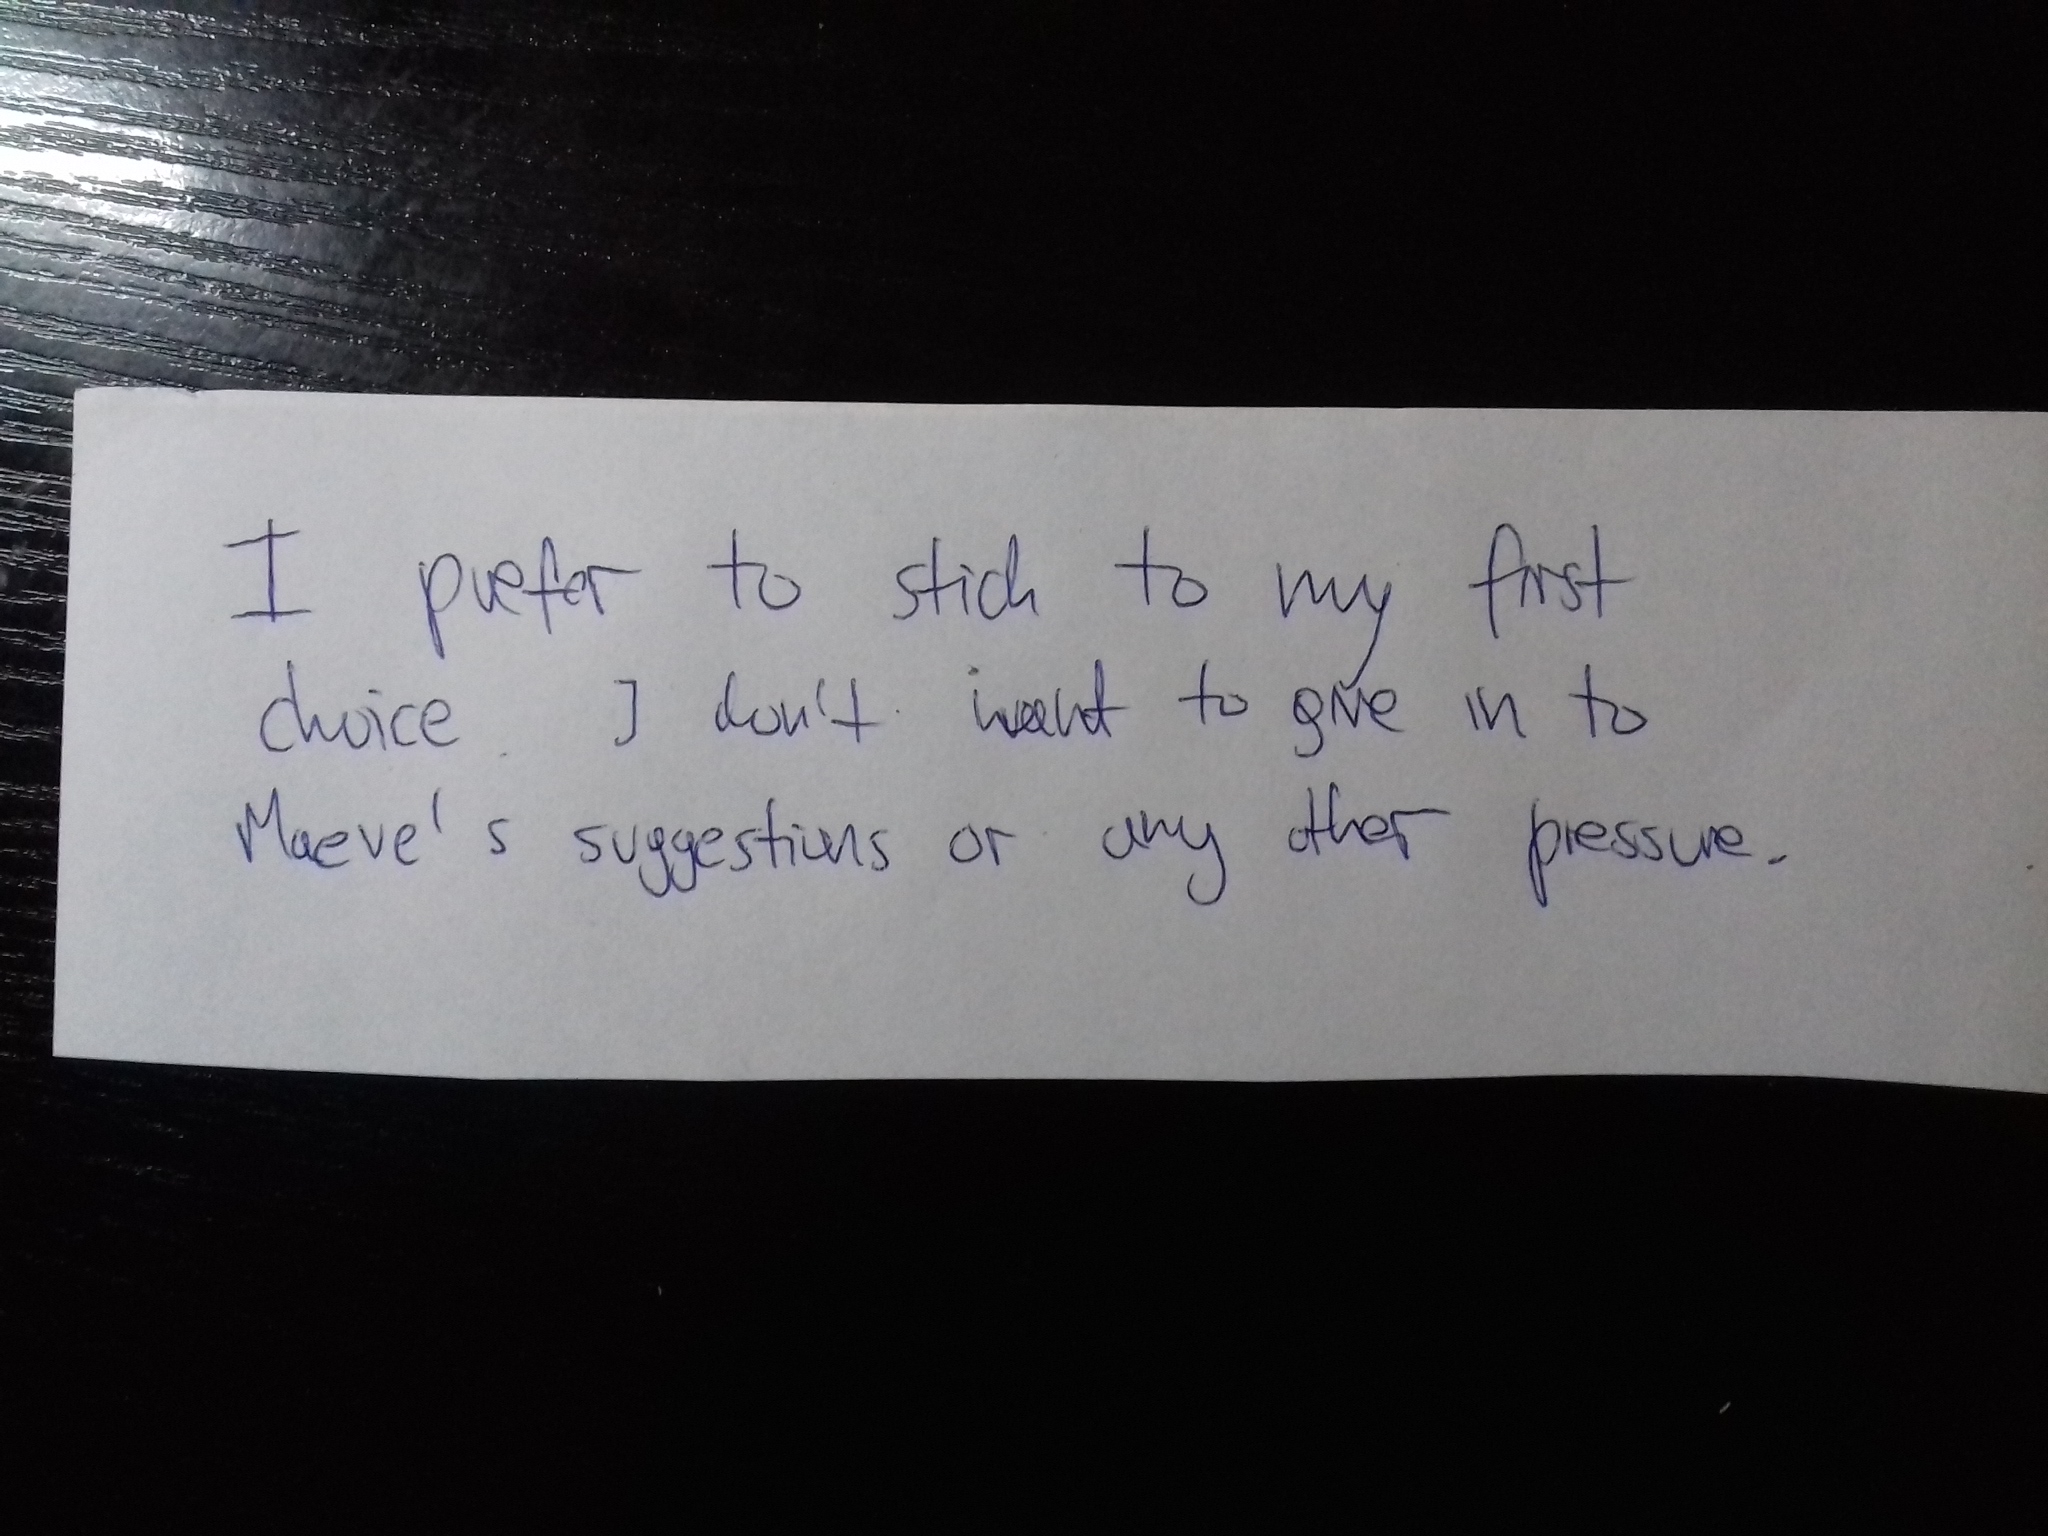 I prefer to stick to my first
choice. I don't want to give in to
Maeve's suggestions or any other pressure.